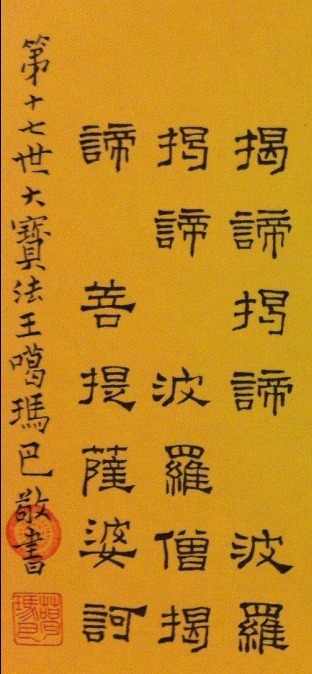 揭諦揭諦 波羅
揭諦 波羅僧揭
諦 菩提薩婆訶
第十七世大寶法王噶瑪巴敬書